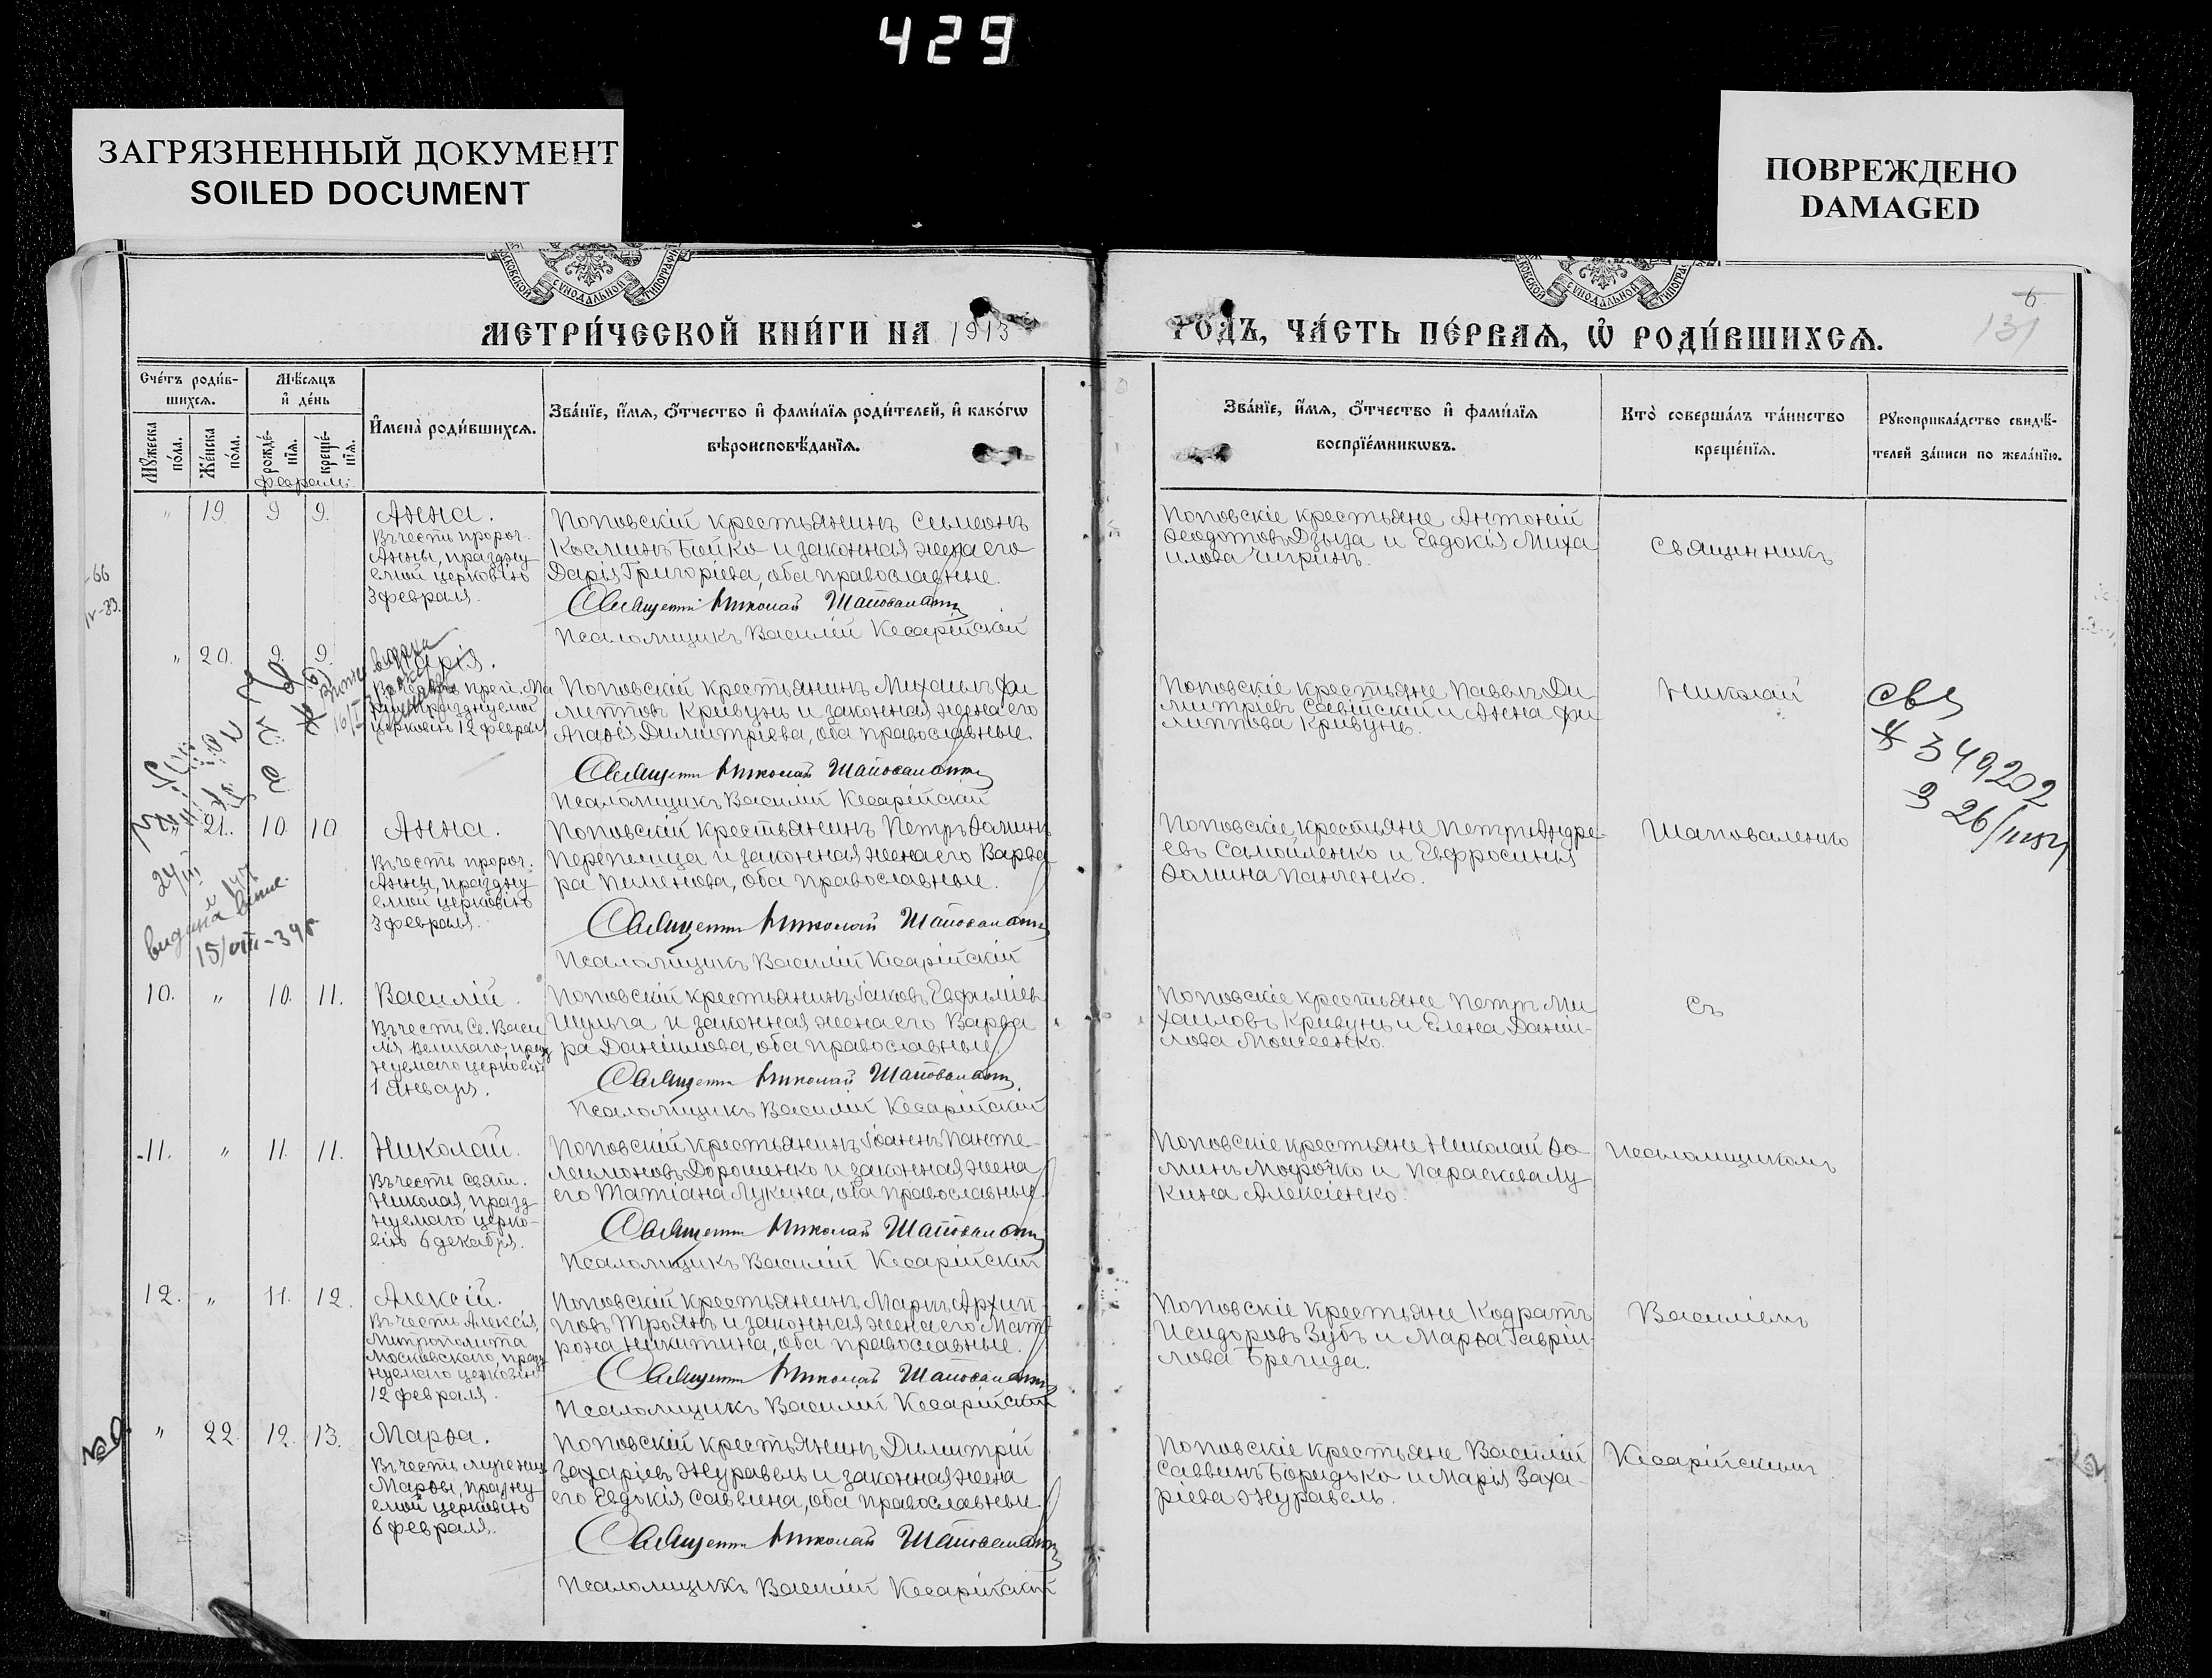 429
ЗАГРЯЗНЕННЫЙ ДОКУМЕНТ
SOILED DOCUMENT
ПОВРЕЖДЕНО
DAMAGED
МЕТРИ́ЧЕСКОЙ КНИ́ГИ НА 1913
ГОДЪ, ЧА́СТЬ ПЕ́РВАѦ, Ѡ҆ РОДИ́ВШИХСѦ.
131
Сче́тъ роди́в-
шихсѧ.
Мѣ́сѧцъ
и҆ де́нь
Мꙋ́жеска по́ла.
Же́нска по́ла.
рожде́-нїѧ.
креще́-нїѧ.
Имена̀ роди́вшихсѧ.
Зва́нїе, и҆́мѧ, ѻ҆́тчество и҆ фами́лїѧ роди́телей, и҆ како́гѡ
вѣроисповѣ́данїѧ.
Зва́нїе, и҆́мѧ, ѻ҆́тчество и҆ фами́лїѧ
воспрїе́мникѡвъ.
Кто̀ соверша́лъ та́инство
креще́нїѧ.
Рꙋкоприкла́дство свидѣ́-
телей за́писи по жела́нїю.
февраль
" 19. 9 9. Анна.
Въ честь пророч.
Анны, праздну
емой церковію
3 февраля.
Поповскій крестьянинъ Симеонъ
Косминъ Бойко и законная жена его
Дарія Григоріева, оба православные.
Священникъ Николай Шаповаленко
Псаломщикъ Василій Кесарійскій
Поповскіе крестьяне Антоній
Ѳеодотовъ Дзыза и Евдокія Миха
илова Чигринъ.
Священникъ
" 20. 9. 9.
церковію 12 февраля
Поповскій крестьянинъ Михаилъ Фи
липповъ Кривунь и законная жена его
Агаѳія Димитріева, оба православные.
Священникъ Николай Шаповаленко
Псаломщикъ Василій Кесарійскій
Поповскіе крестьяне Павелъ Ди
митріевъ Савицкій и Анна Фи
липпова Кривунь.
Николай
349202
" 21. 10 10 Анна.
Въ честь пророч.
Анны, праздну
емой церковію
3 февраля.
Поповскій крестьянинъ Петръ Ѳоминъ
Перепелица и законная жена его Варва
ра Пименова, оба православные.
Священникъ Николай Шаповаленко
Псаломщикъ Василій Кесарійскій
Поповскіе крестьяне Петръ Андре-
евъ Самойленко и Евфросинія
Ѳомина Панченко.
Шаповаленко
видана
15/VIII-39 г.
10. " 10. 11. Василій.
Въ честь Св. Васи
лія Великаго, празд
нуемаго церковію
1 января.
Поповскій крестьянинъ Іаковъ Евфиміевъ
Шульга и законная жена его Варва
ра Даніилова, оба православные.
Священникъ Николай Шаповаленко
Псаломщикъ Василій Кесарійскій
Поповскіе крестьяне Петръ Ми
хаиловъ Кривунь и Елена Даніи-
лова Моисеенко.
Съ
11. " 11. 11. Николай.
Въ честь Свят.
Николая, празд
нуемаго церко-
вію 6 декабря.
Поповскій крестьянинъ Іоаннъ Панте-
леимоновъ Дорошенко и законная жена
его Татіана Лукина, оба православные.
Священникъ Николай Шаповаленко
Псаломщикъ Василій Кесарійскій
Поповскіе крестьяне Николай Ѳо
минъ и Параскева Лу
кина Алексіенко.
Псаломщикомъ
12. " 11. 12. Алексій.
Въ честь Алексія,
Митрополита
Московскаго, празд
нуемаго церковію
12 февраля.
Поповскій крестьянинъ Маркъ Архип-
повъ Троянъ и законная жена его Мат
рона Никитина, оба православные.
Священникъ Николай Шаповаленко
Псаломщикъ Василій Кесарійскій
Поповскіе крестьяне Кодратъ
Исидоровъ Зубъ и Марѳа Гавріи-
лова Брегида.
Василіемъ
" 22. 12. 13. Марѳа.
Въ честь мученицы
Марѳы, праздну
емой церковію
6 февраля.
Поповскій крестьянинъ Димитрій
Захаріевъ Журавель и законная жена
его Евдокія Саввина, оба православные.
Священникъ Николай Шаповаленко
Псаломщикъ Василій Кесарійскій
Поповскіе крестьяне Василій
Саввинъ Боридько и Марія Заха-
ріева Журавель.
Кесарійскимъ